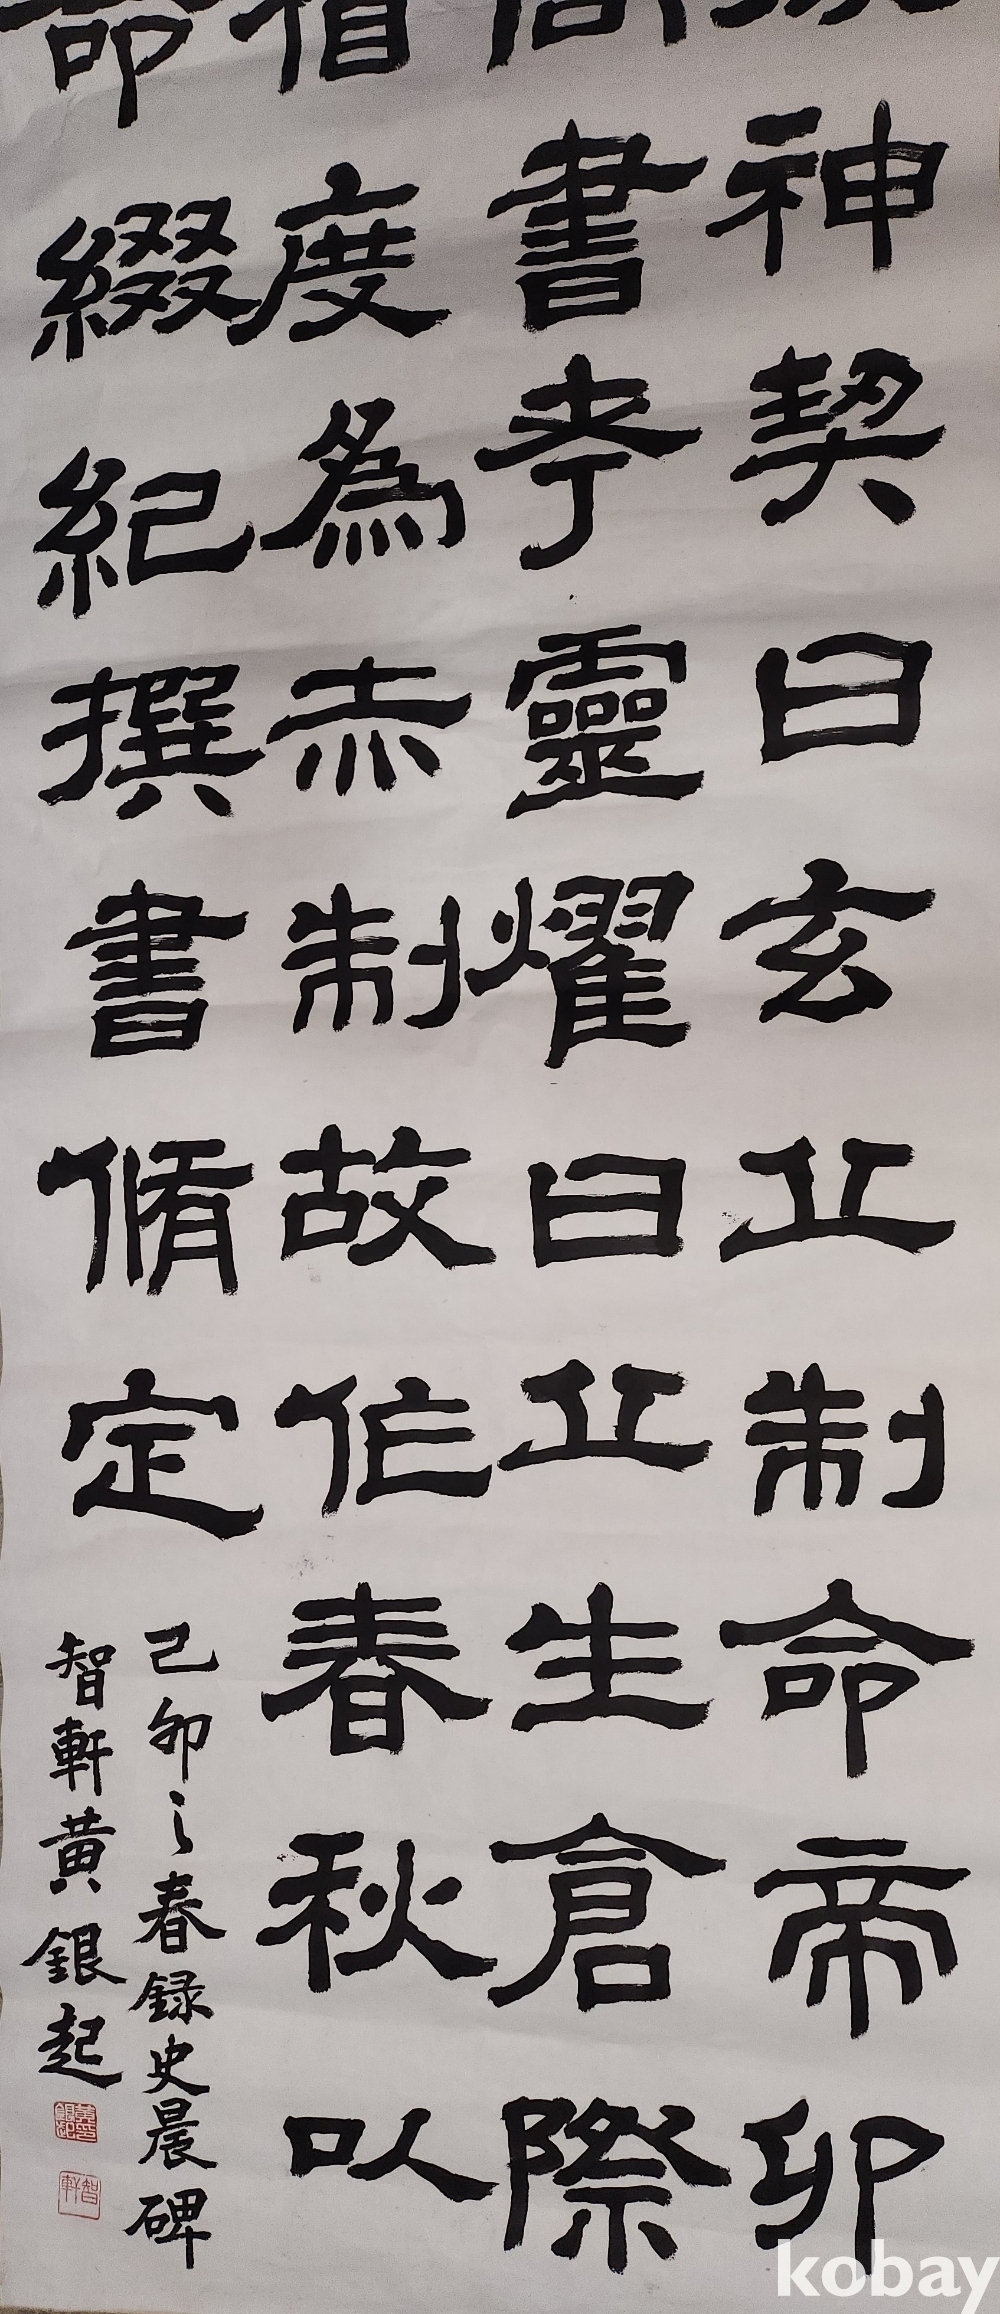 神契曰玄丘制命帝卯
書考靈耀曰丘生倉際
度為赤制故作春秋以
命綴紀撰書脩定
己卯之春録史晨碑
智軒黃銀起
智軒
kobay